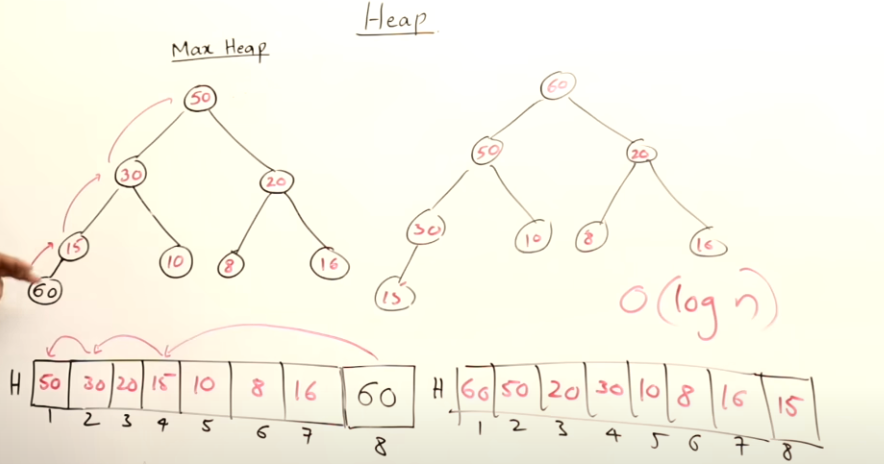 Heap
Max Heap
50
30
20
15
10
8
16
60
60
50
20
30
10
8
16
15
O(log n)
H 50 30 20 15 10 8 16 60
1 2 3 4 5 6 7 8
H 60 50 20 30 10 8 16 15
1 2 3 4 5 6 7 8